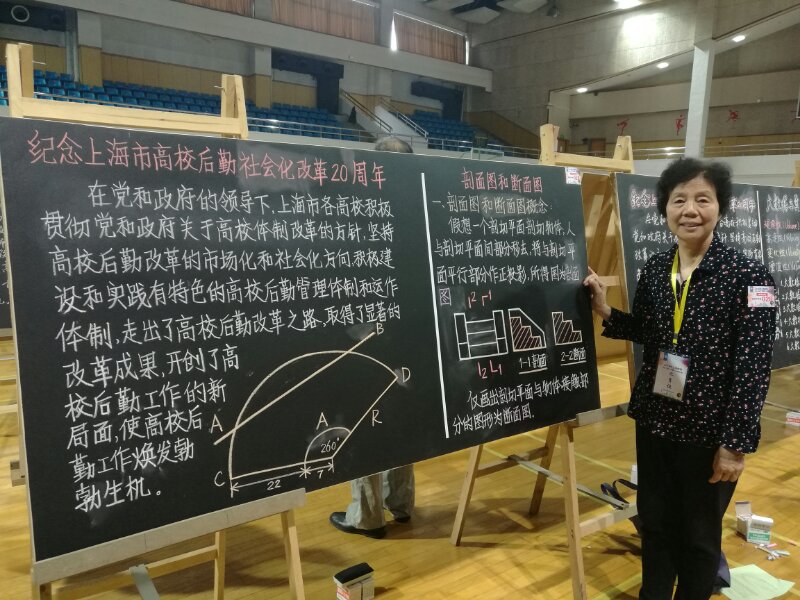 纪念上海市高校后勤社会化改革20周年
在党和政府的领导下,上海市各高校积极
贯彻党和政府关于高校体制改革的方针,坚持
高校后勤改革的市场化和社会化方向,积极建
设和实践有特色的高校后勤管理体制和运作
体制,走出了高校后勤改革之路,取得了显著的
改革成果,开创了高
校后勤工作的新
局面,使高校后
勤工作焕发勃
勃生机。
A
B
C
D
A
R
260°
22
7
剖面图和断面图
一、剖面图和断面图概念:
假想一个剖切平面剖切物体,人
与剖切平面间部分移去,将与剖切平
面平行部分作正投影,所得图为剖面
图
1-1剖面
2-2断面
仅画出剖切平面与物体接触部
分的图形为断面图.